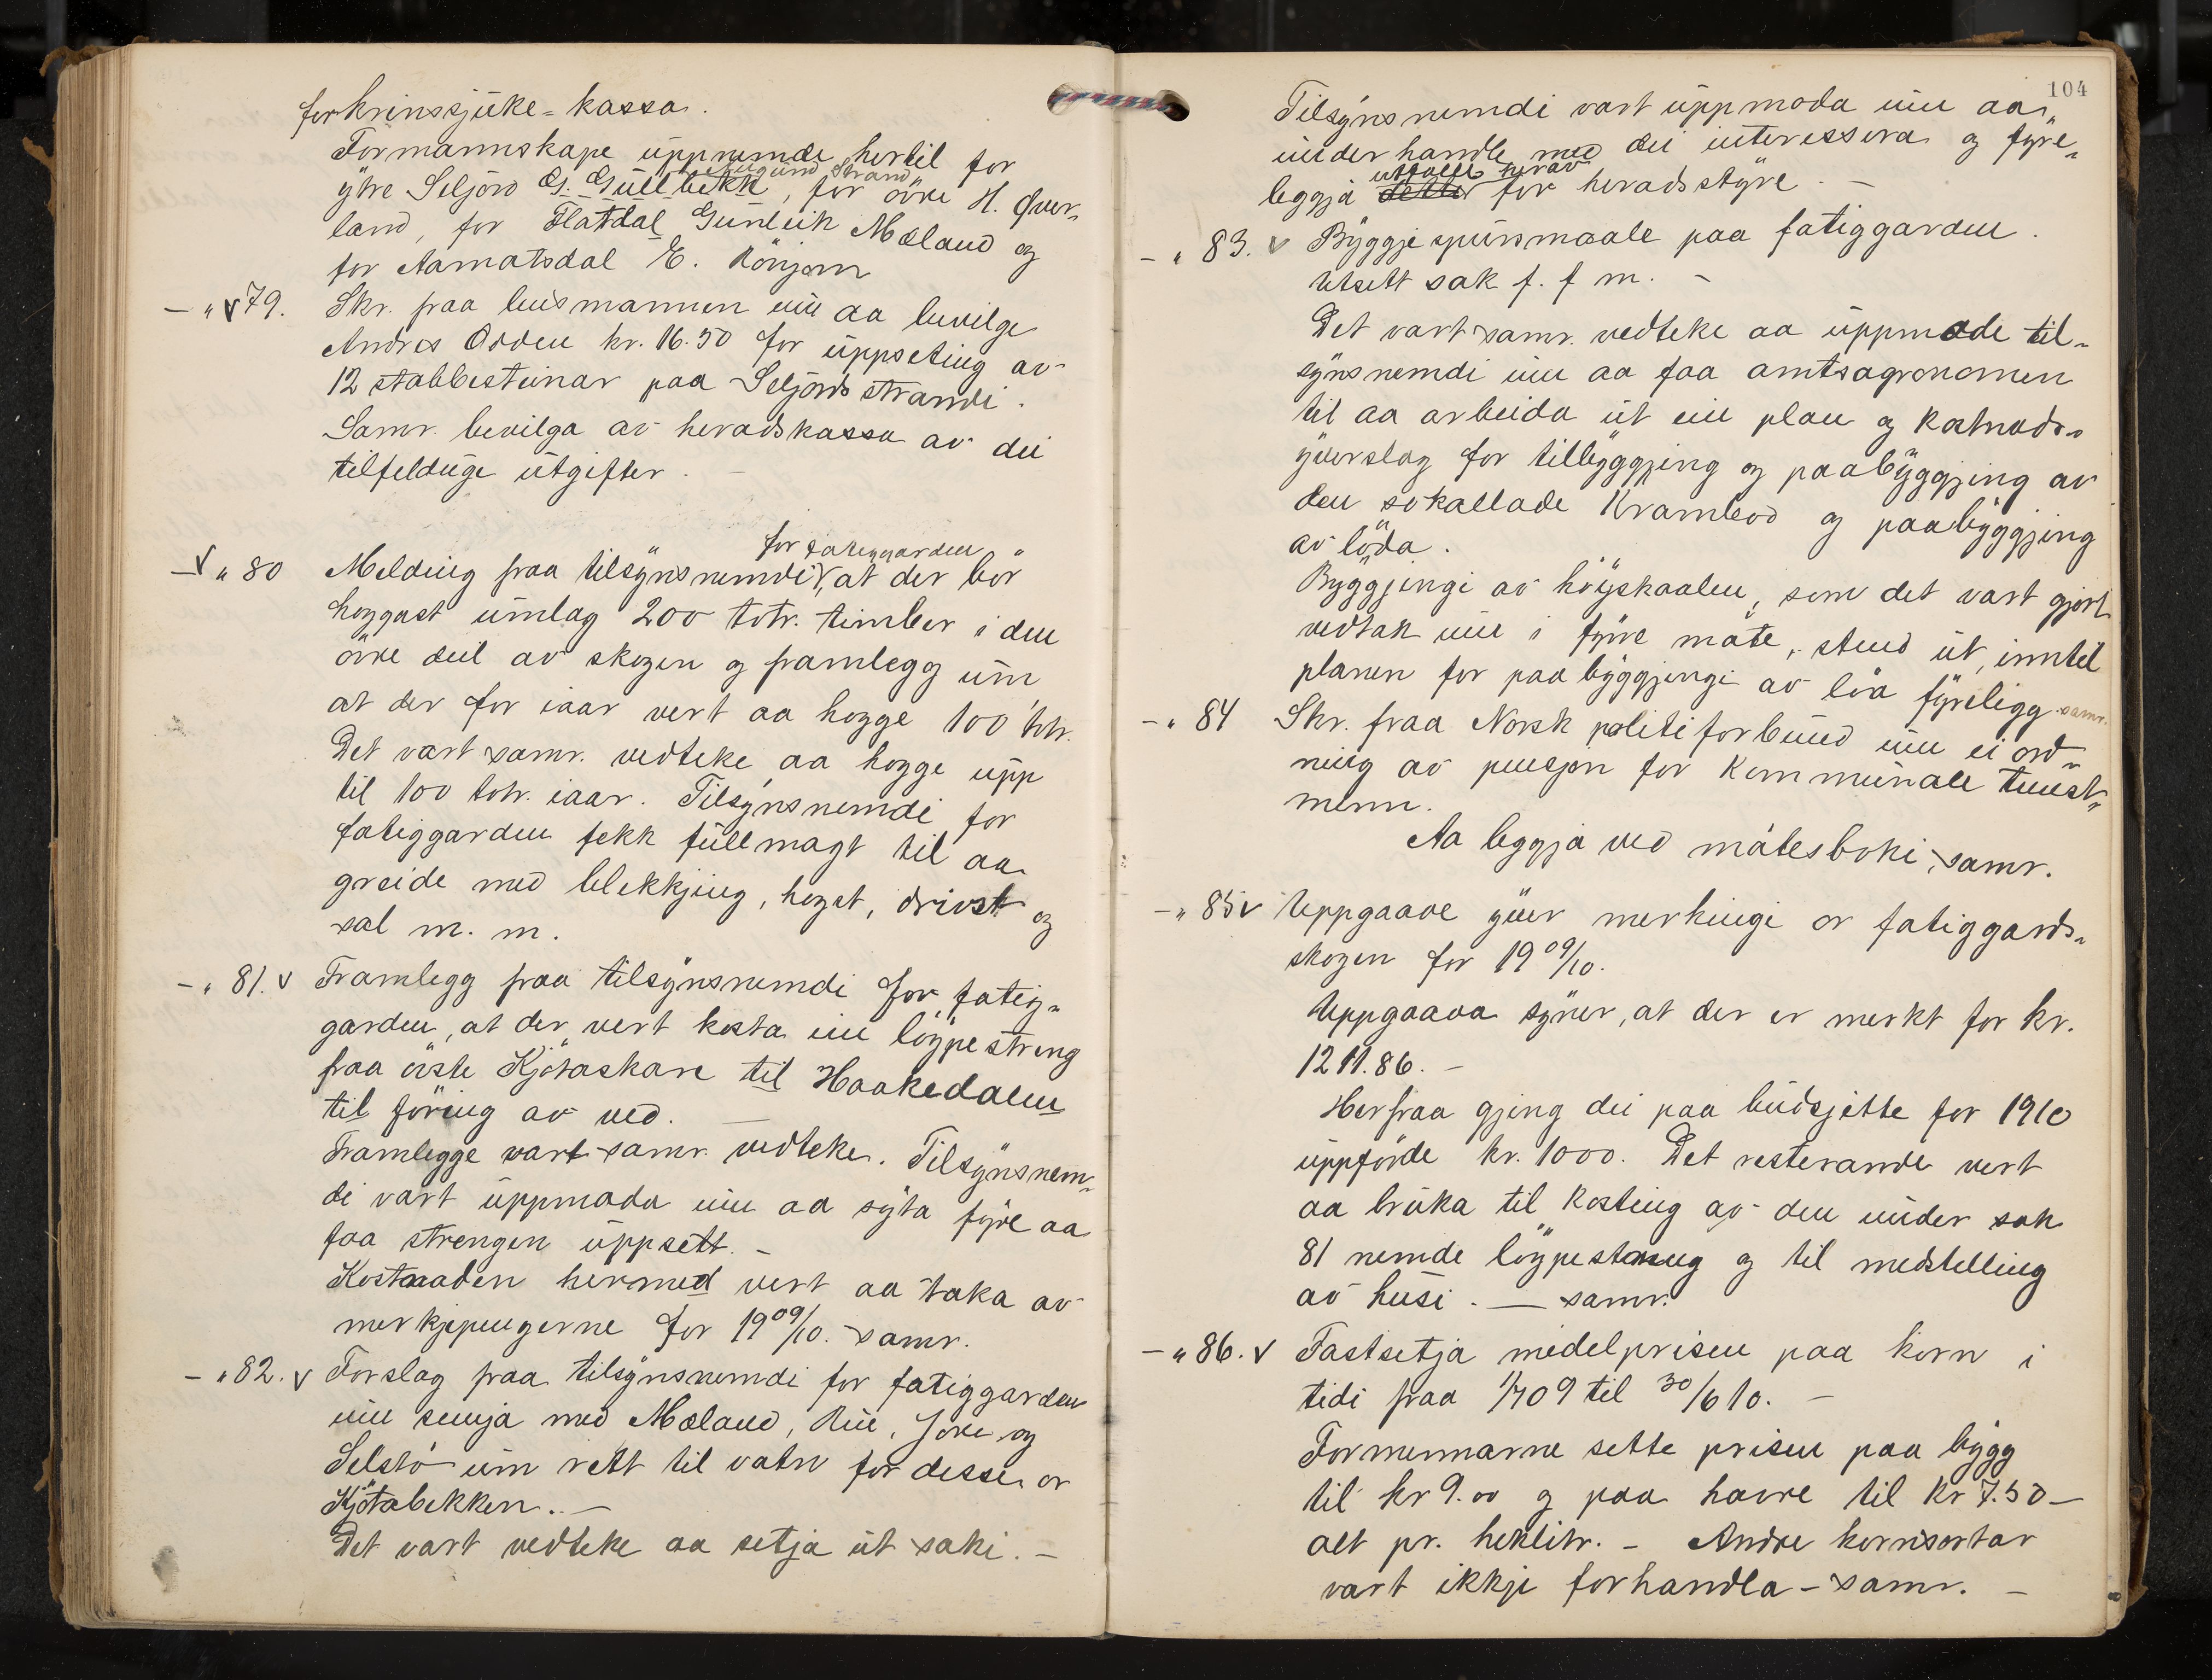 for krinssjuke-kassa.
Formannskape uppnemde hertil for
Strand
ytre Seljord G. Gullbekk, for övre H. Över-
land, for Flatdal Gunleik Mæland og
for Aamatsdal E. Rönjom
- " v 79. Skr. fraa lensmannen um aa bevilge
Andres Odden kr. 16.50 for uppseting av
12 stabbesteinar paa Seljordsstrandi.
Samr. bevilga av heradskassa av dei
tilfelduge utgifter. -
for fatiggarden
- v " 80 Melding fraa tilsynsnemdi, at der bör
hoggast umlag 200 totr. timber i den
övre deil av skogen og framlegg um
at der for iaar vert aa hogge 100 totr.
Det vart samr. vedteke aa hogge upp
til 100 totr. iaar. Tilsynsnemdi for
fatiggarden fekk fullmagt til aa
greide med blekkjing, hogst, drivst og
sal m. m.
- " 81. v Framlegg fraa tilsynsnemdi for fatig-
garden, at der vert kosta ein löypestreng
fraa övste Kjötaskare til Haakedalen
til föring av ved. -
Framlegge vart samr. vedteke. Tilsynsnem-
di vart uppmoda um aa syta fyre aa
faa strengen uppsett. -
Kostnaden hermed vert aa taka av
merkjepengerne for 1909/10. samr.
- " 82. v Forslag fraa tilsynsnemdi for fatiggarden
um semja med Mæland, Rue, Jore og
Selstö um rett til vatn for desse or
Kjötabekken. -
Det vart vedteke aa setja ut saki. -
104
Tilsynsnemdi vart uppmoda um aa
underhandle med dei interessera og fyre-
utfalle herav
leggja dette for heradsstyre. -
- " 83. v Byggjespursmaale paa fatiggarden.
Utsett sak f. f m. -
Det vart samr. vedteke aa uppmode til-
synsnemdi um aa faa amtsagronomen
til aa arbeida ut ein plan og kostnads-
yverslag for tilbyggjing og paabyggjing av
den sokallade Krambod og paabyggjing
av löda.
Byggjingi av höyskaalen, som det vart gjort
vedtak um i fyrre möte, stend ut, inntil
planen for paabyggjingi av löa fyreligg. samr.
- " 84 Skr. fraa Norsk politiforbund um ei ord-
ning av pensjon for kommunale tenest-
menn.
Aa leggja ved mötesboki, samr.
- " 85 v Uppgaave yver merkingi or fatiggards-
skogen for 1909/10.
Uppgaava syner, at der er merkt for kr.
1211.86. -
Herfraa gjeng dei paa budsjette for 1910
uppförde kr. 1000. Det resterande vert
aa bruka til kosting av den under sak
81 nemde löypestreng og til medstelling
av husi. - samr.
- " 86. v Fastsetja medelprisen paa korn i
tidi fraa 1/7 09 til 30/6 10. -
Formennarne sette prisen paa bygg
til kr 9.00 og paa havre til kr 7.50 -
alt pr. heklitr. - Andre kornsortar
vart ikkje forhandla - samr. -